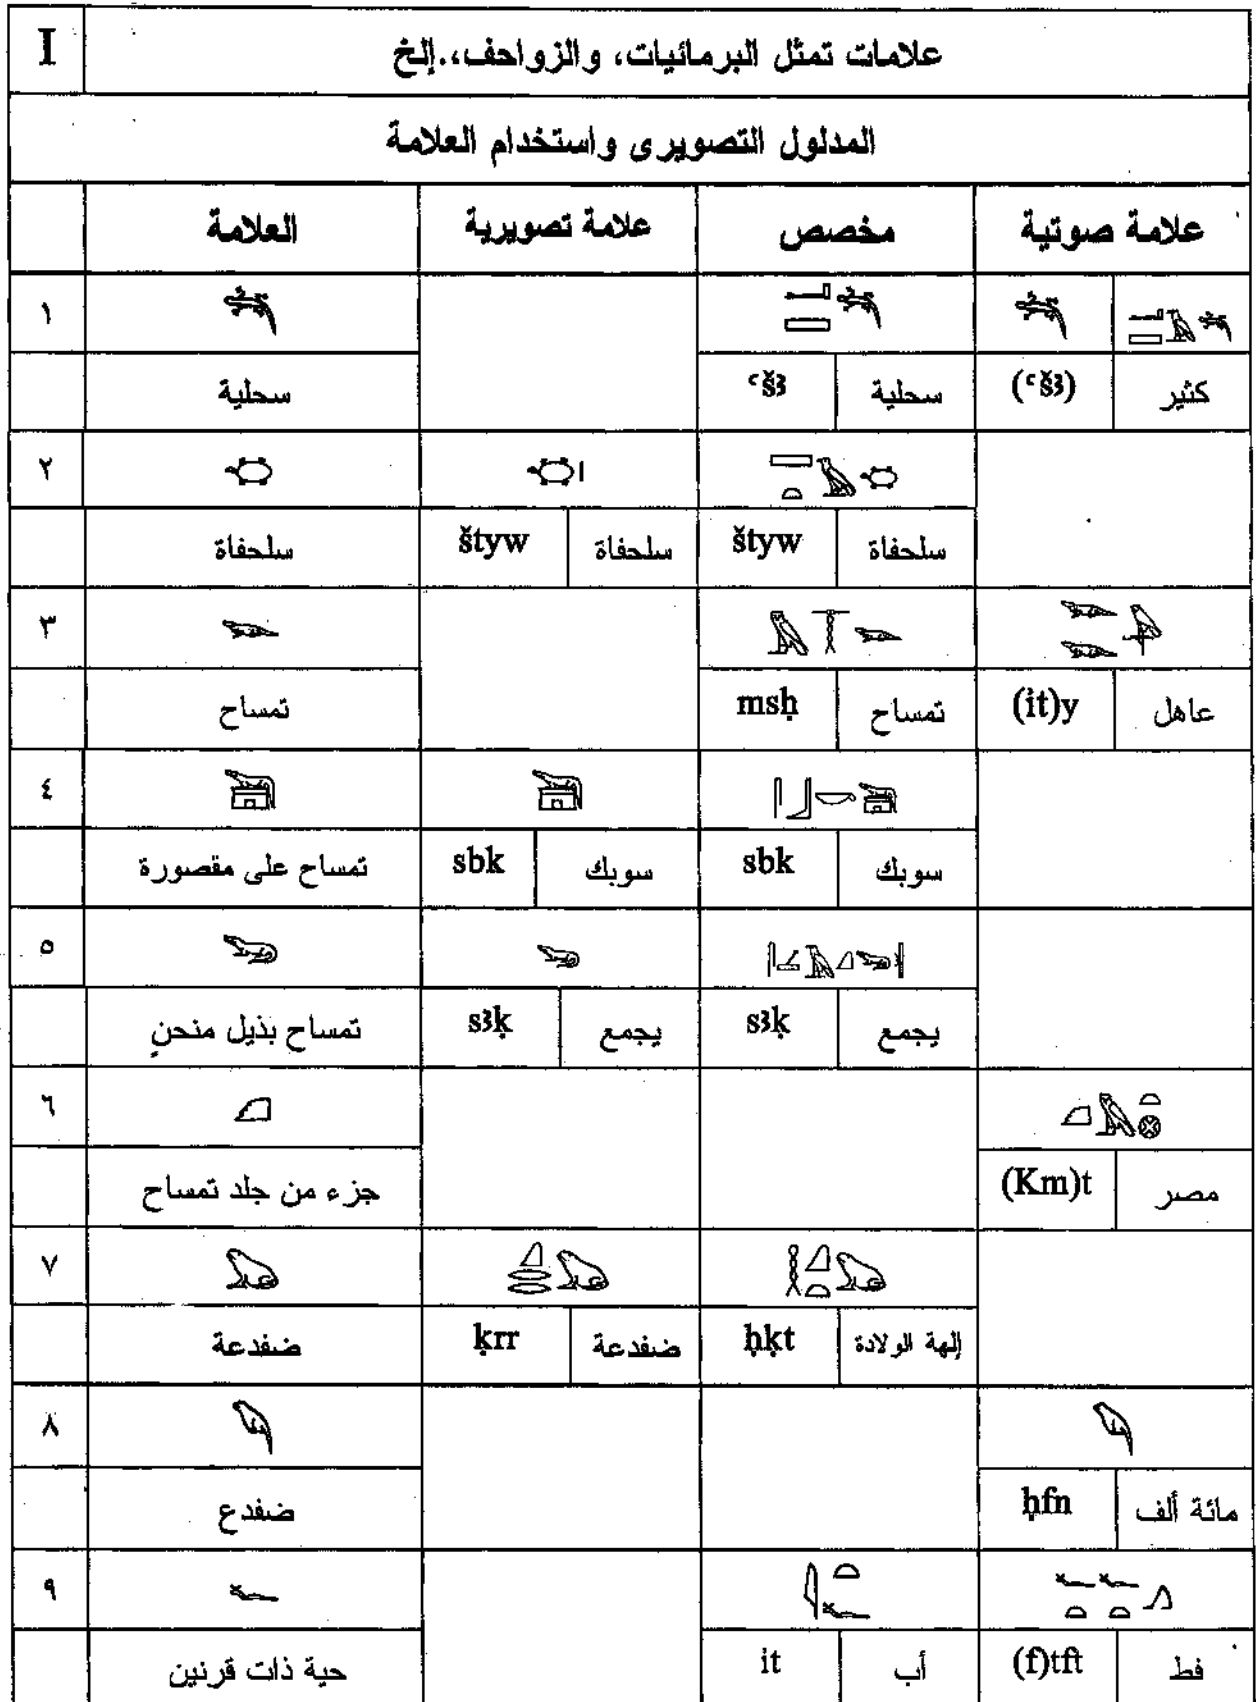 I علامات تمثل البرمائيات، والزواحف،.إلخ
المدلول التصويرى واستخدام العلامة
العلامة علامة تصويرية مخصص علامة صوتية
١
سحلية ꜥšꜣ سحلية (ꜥšꜣ) كثير
٢
سلحفاة štyw سلحفاة štyw سلحفاة
٣
تمساح msḥ تمساح (it)y عاهل
٤
تمساح على مقصورة sbk سوبك sbk سوبك
٥
تمساح بذيل منحنٍ sꜣḳ يجمع sꜣḳ يجمع
٦
جزء من جلد تمساح (Km)t مصر
٧
ضفدعة ḳrr ضفدعة ḥḳt إلهة الولادة
٨
ضفدع ḥfn مائة ألف
٩
حية ذات قرنين it أب (f)tft فط